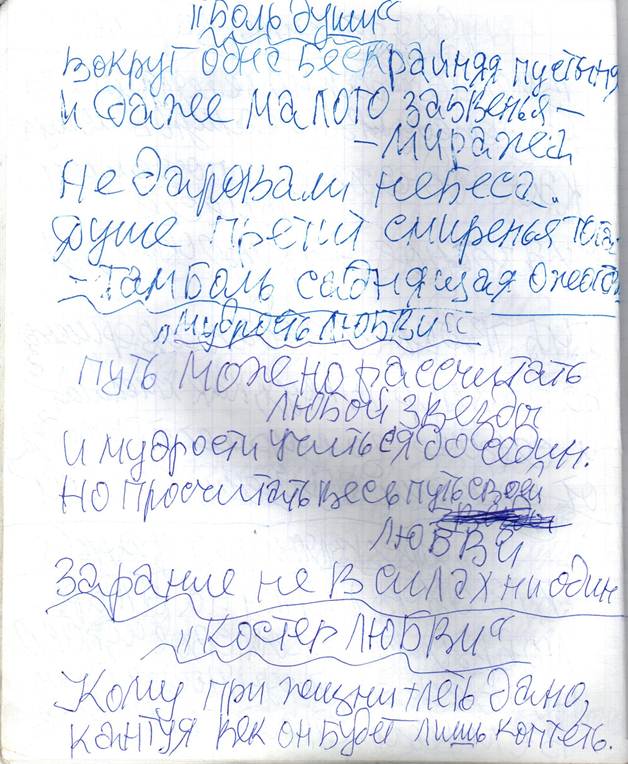 "Боль души"
Вокруг одна бескрайняя пустыня
И даже малого забвенья –
– миража
Не даровали небеса.
Душе претит смиренья
– Там боль саднящая
"Мудрость любви"
Путь можно рассчитать
любой звезды
И мудрости учиться до седин.
Но просчитать весь путь своей
любви
Зарание не в силах ни один
"Костер любви"
Кому при жизни тлеть дано,
Кантуя век он будет лишь коптеть.